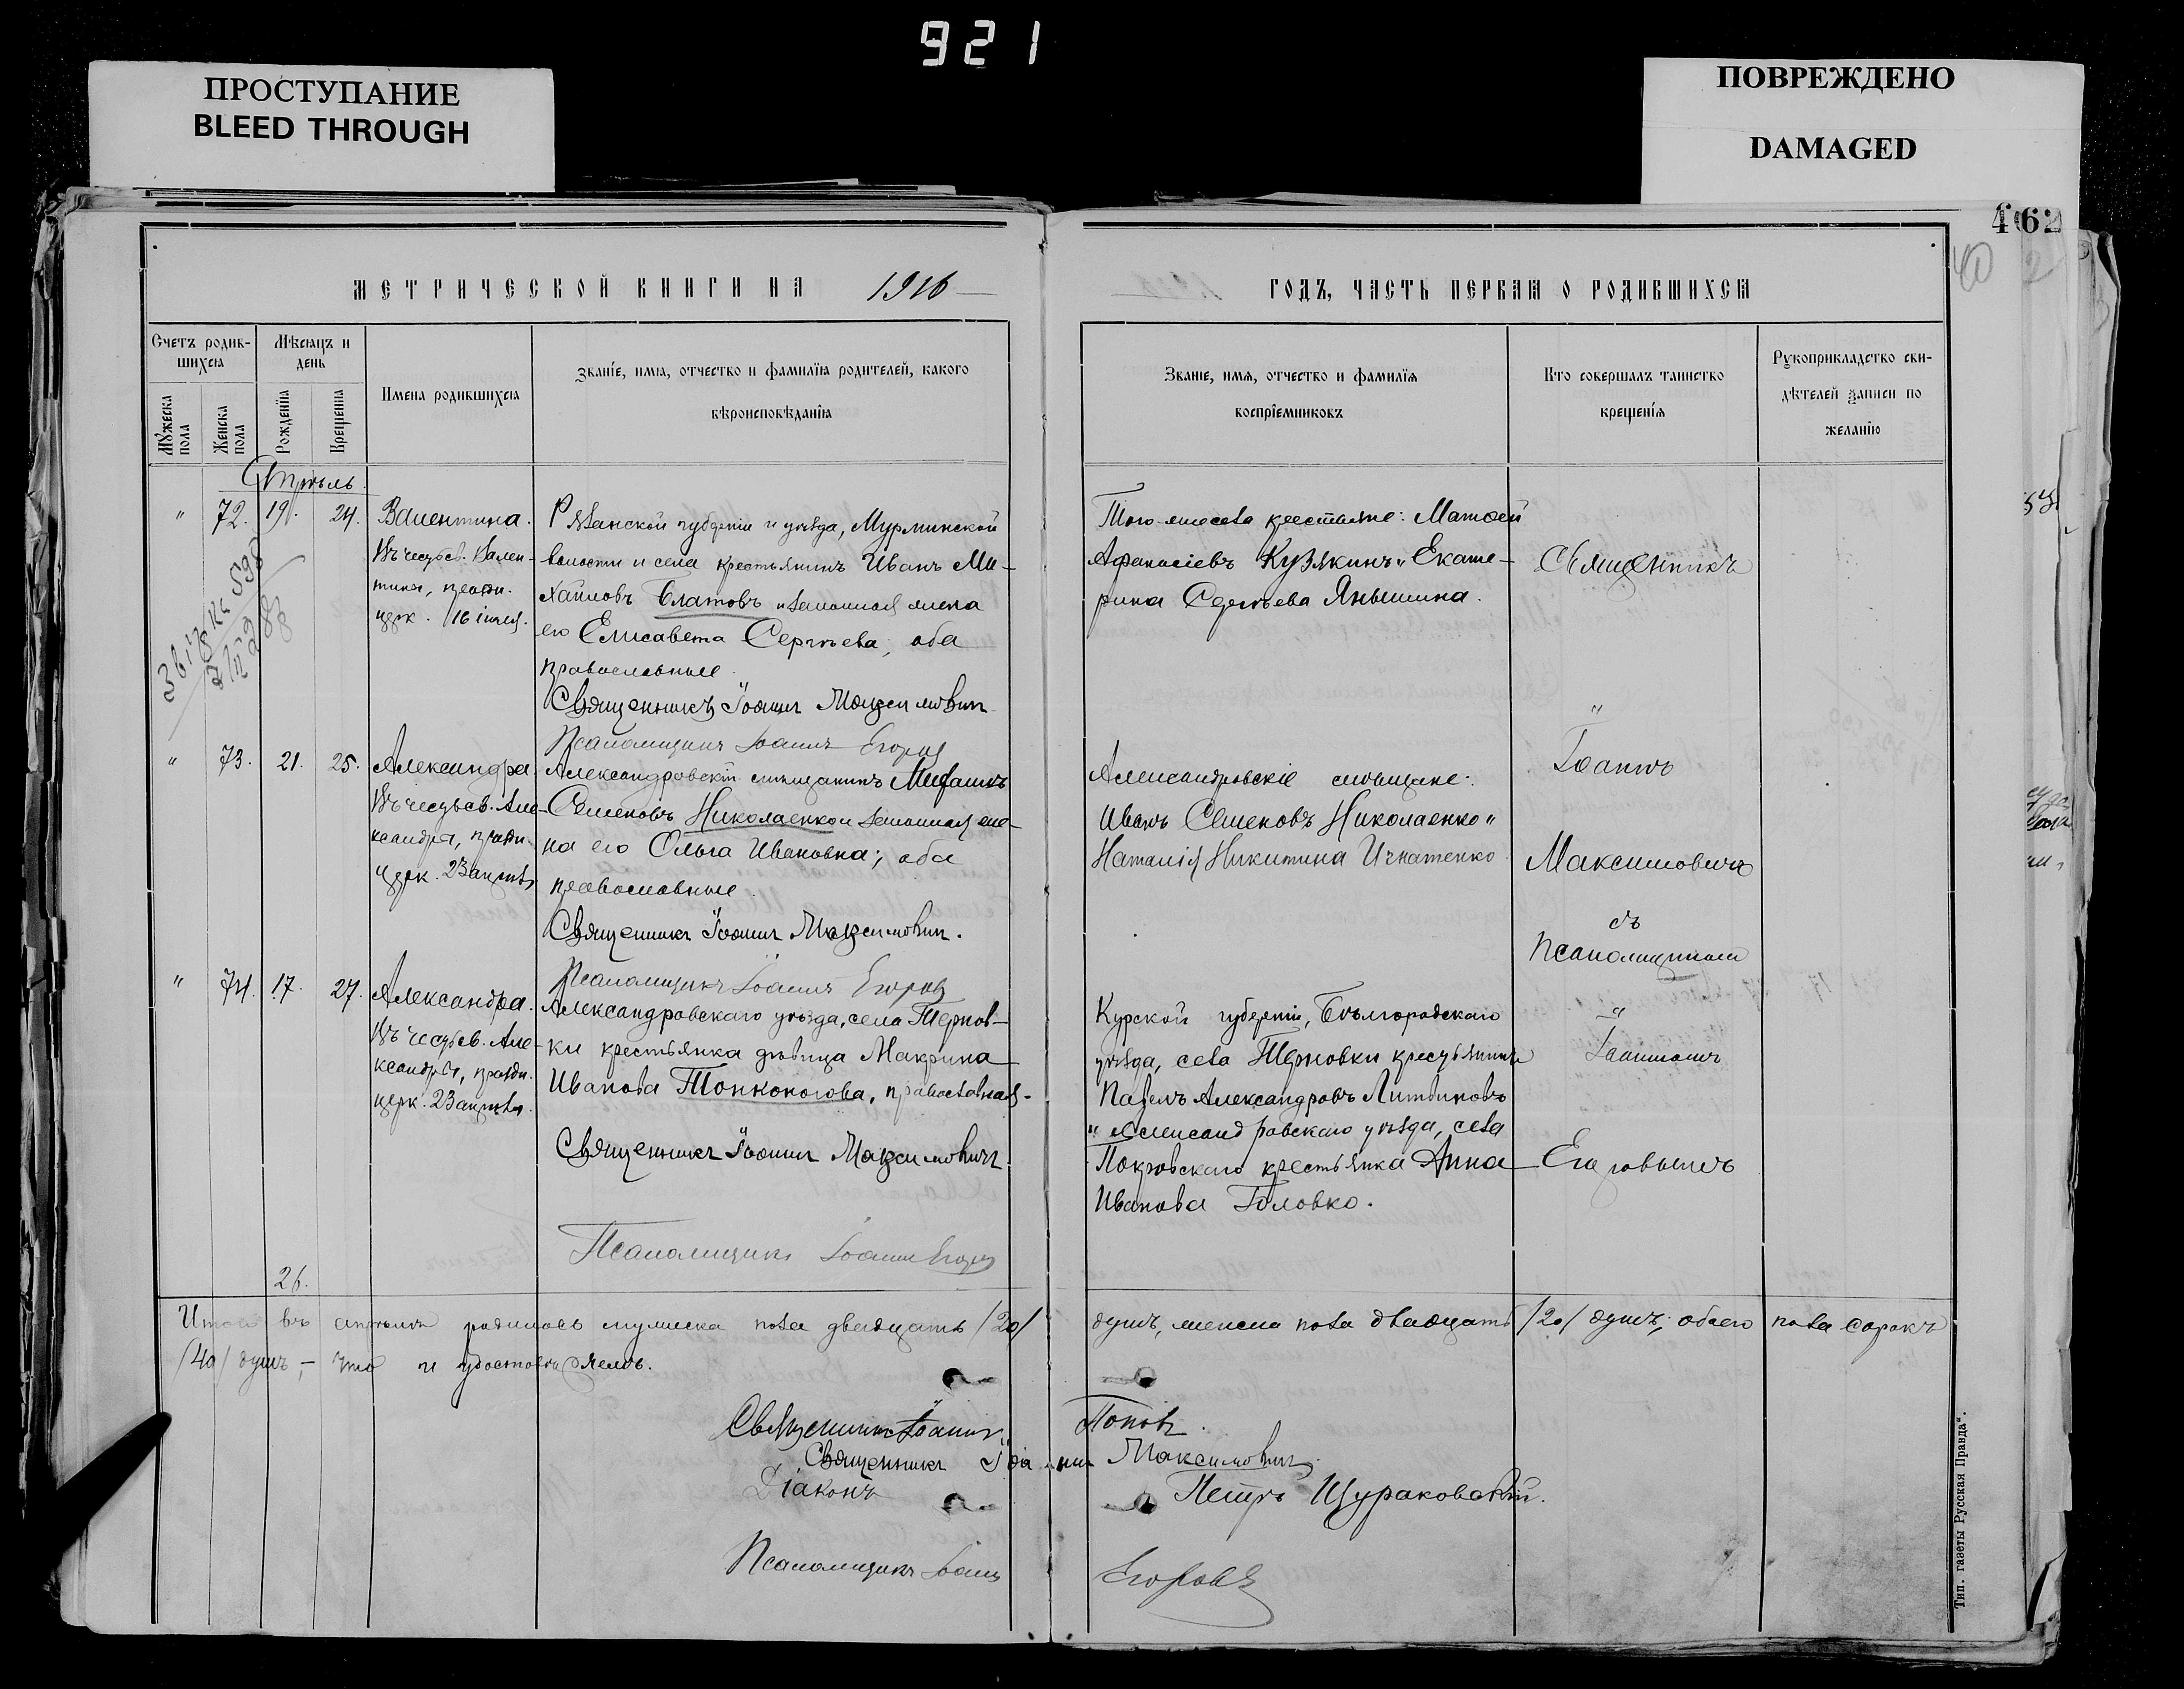 921
ПРОСТУПАНИЕ
BLEED THROUGH
ПОВРЕЖДЕНО
DAMAGED
462
МЕТРИЧЕСКОЙ КНИГИ НА 1916
ГОДЪ, ЧАСТЬ ПЕРВАЯ О РОДИВШИХСЯ
Счетъ родив-
шихся
Мѣсяцъ и
день
Мужеска
пола
Женска
пола
Рожденія
Крещенія
Имена родившихся
Званіе, имя, отчество и фамилія родителей, какого
вѣроисповѣданія
Званіе, имя, отчество и фамилія
воспріемниковъ
Кто совершалъ таинство
крещенія
Рукоприкладство сви-
дѣтелей записи по
желанію
Апрѣль.
" 72. 19. 24. Валентина.
Въ честь св. Вален-
тины, праздн.
церк. 16 іюля.
Рязанской губерніи и уѣзда, Мурминской
волости и села крестьянинъ Иванъ Ми-
хайловъ Блатовъ и законная жена
его Елисавета Сергѣева, оба
православные.
Священникъ Іоаннъ Максимовичъ
Псаломщикъ Іоаннъ Егоровъ
Того же села крестьяне: Матѳей
Афанасіевъ Кузякинъ и Екате-
рина Сергѣева Янышина.
Священникъ
"
" 73. 21. 25. Александра
Въ честь св. Але-
ксандры, праздн.
церк. 23 апрѣля
Александровскій мѣщанинъ Митрофанъ
Семеновъ Николаенко и законная же-
на его Ольга Ивановна; оба
православные.
Священникъ Іоаннъ Максимовичъ.
Псаломщикъ Іоаннъ Егоровъ
Александровскіе мѣщане:
Иванъ Семеновъ Николаенко и
Наталія Никитина Игнатенко
Іоаннъ
Максимовичъ
съ
Псаломщикомъ
" 74. 17. 27. Александра.
Въ честь св. Але-
ксандры, праздн.
церк. 23 апрѣля.
Александровскаго уѣзда, села Тернов-
ки крестьянка дѣвица Макрина
Иванова Тонконогова, православная.
Священникъ Іоаннъ Максимовичъ
Псаломщикъ Іоаннъ Егоровъ
Курской губерніи, Бѣлгородскаго
уѣзда, села Терновки крестьянинъ
Павелъ Александровъ Литвиновъ
и Александровскаго уѣзда, села
Покровскаго крестьянка Анна
Иванова Головко.
"
Іоанномъ
Егоровымъ
26.
Итого въ апрѣлѣ родилось мужеска пола двадцать /20/ душъ, женска пола двадцать /20/ душъ; обоего пола сорокъ
/40/ душъ, – что и удостовѣряемъ.
Священникъ Іоаннъ Поповъ.
Священникъ Іоаннъ Максимовичъ.
Діаконъ Петръ Щураковскій.
Псаломщикъ Іоаннъ Егоровъ
Тип. газеты Русская Правда".